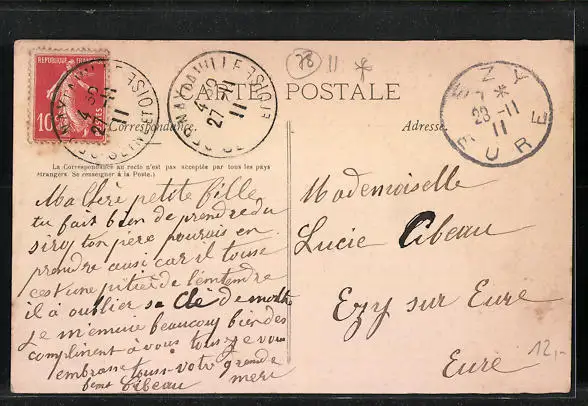 78 11 *
REPUBLIQUE FRANÇAISE
10
SEINE-ET-OISE
4 35
27 - 11
11
4 35
27 - 11
11
CARTE POSTALE
EZY
*
28 - 11
11
EURE
Correspondance
Adresse
La Correspondance au recto n'est pas acceptée par tous les pays
étrangers. Se renseigner à la Poste.)
Ma chère petite fille
tu fait bien de prendre du
sirop ton père pourais en
prendre ausi car il touse
c'est une pitier de l'entendre
il à oublier sa Clé de montre
je m'ennuie beaucoup bien des
compliment à vous tous je vous
embrasse tous votre grande
mère
bibeau
Mademoiselle
Lucie bibeau
Ezy sur Eure
Eure
12,-